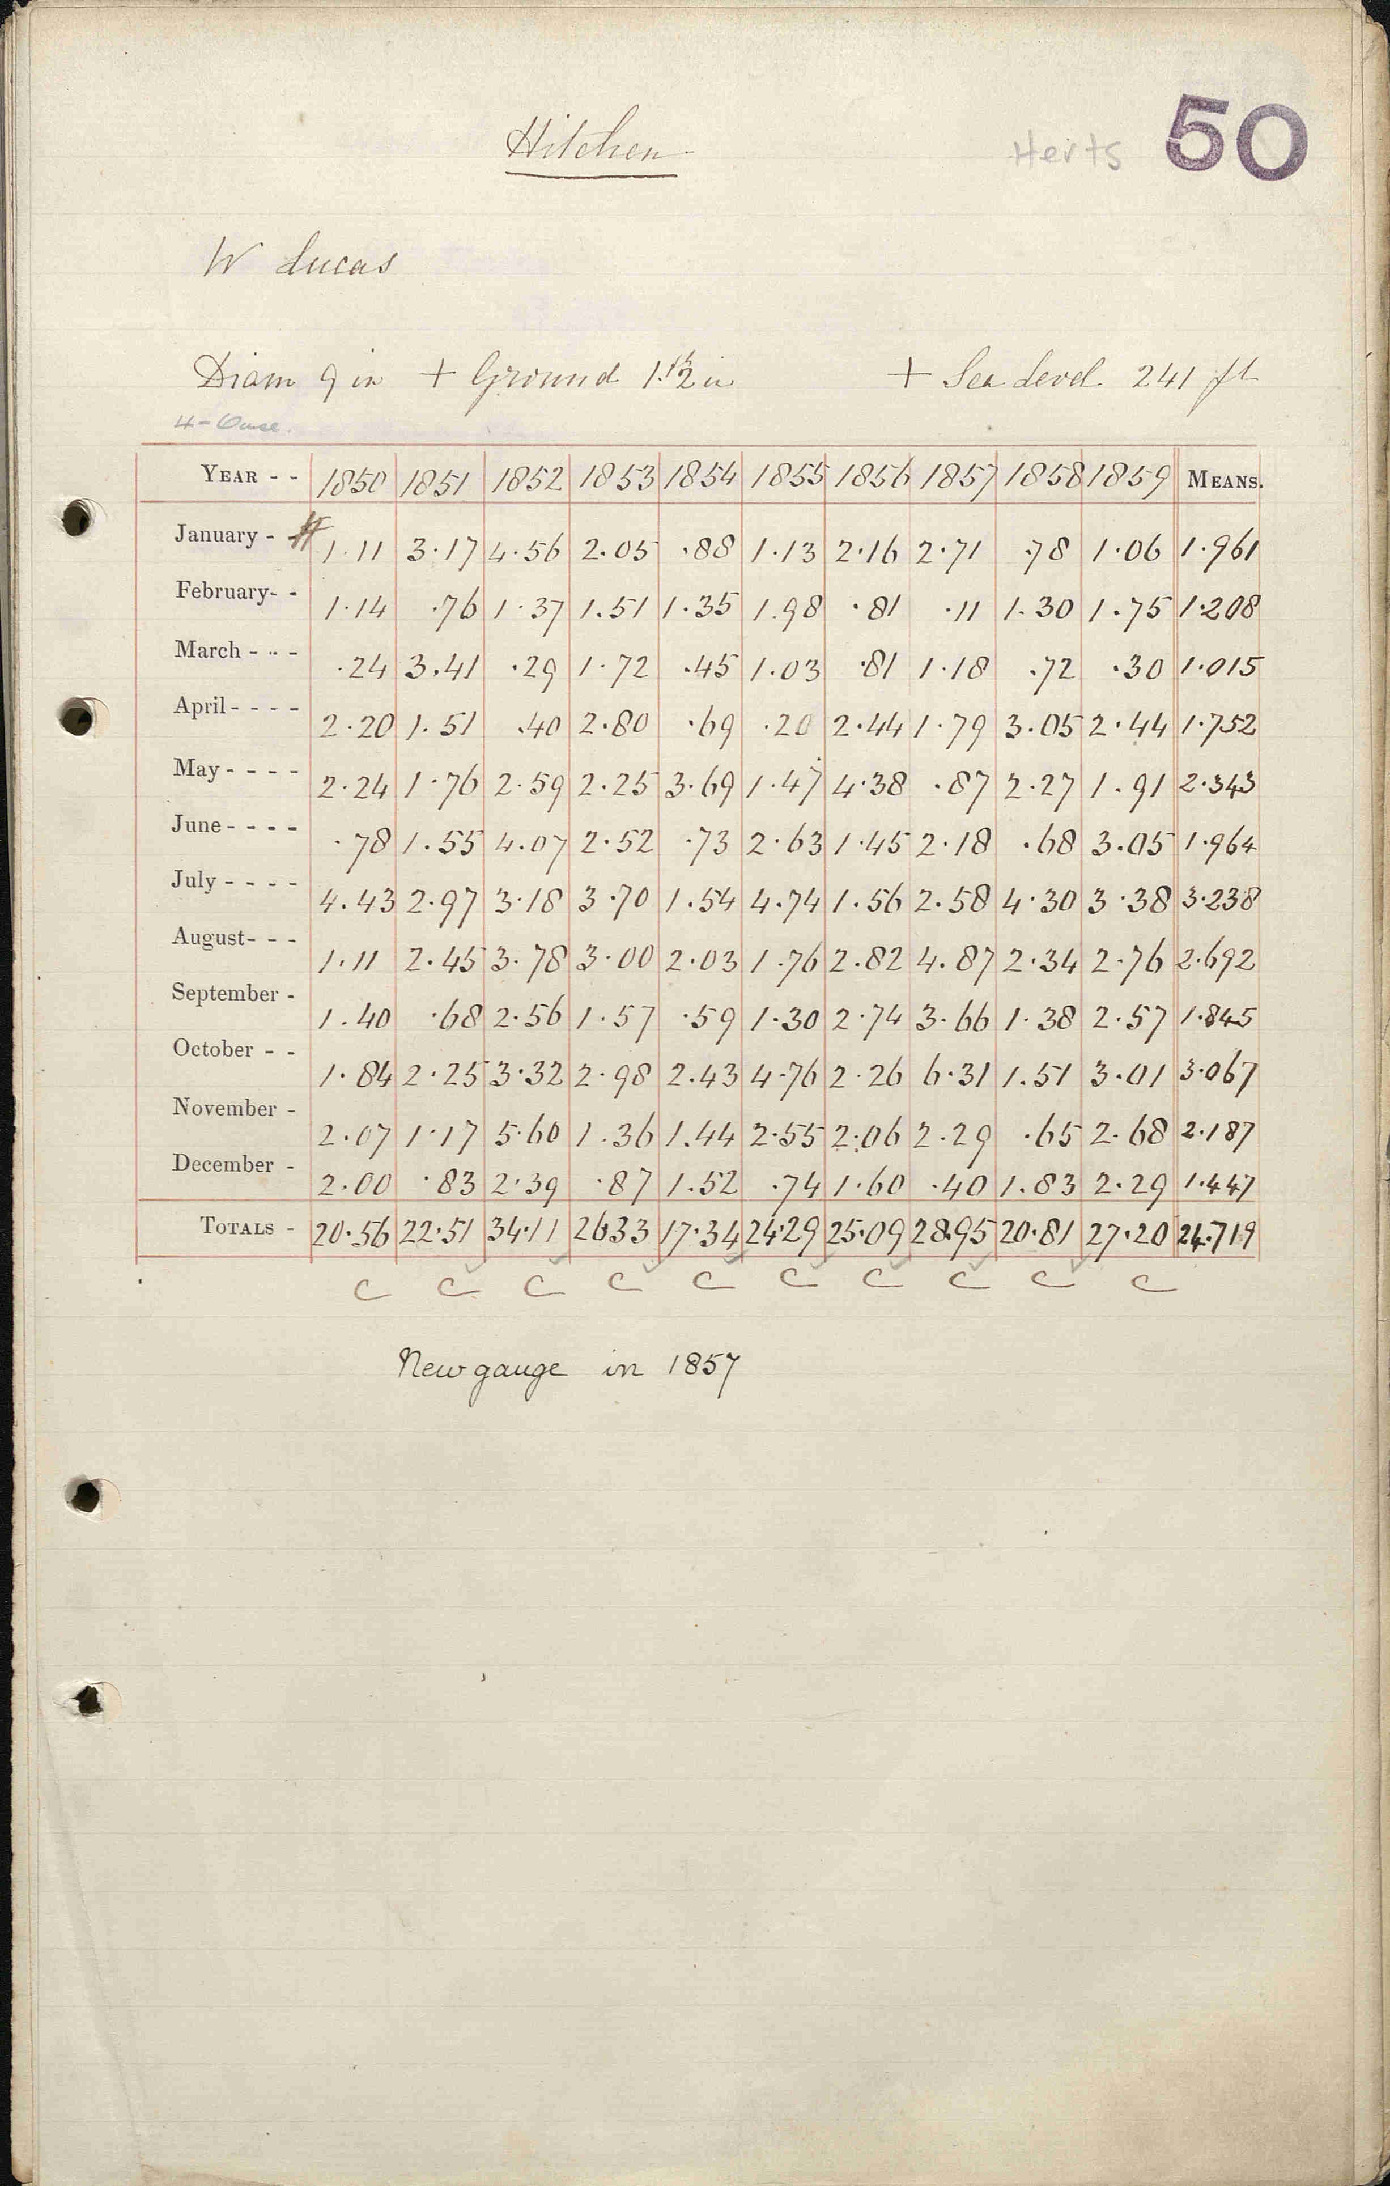 Hitchen
Herts 50
W Lucas
Diam 9 in + Ground 1 ft 2 in + Sea Level 241 ft
4 - Ouse.
YEAR - - 1850 1851 1852 1853 1854 1855 1856 1857 1858 1859 MEANS.
January - 1.11 3.17 4.56 2.05 .88 1.13 2.16 2.71 .78 1.06 1.961
February - - 1.14 .76 1.37 1.51 1.35 1.98 .81 .11 1.30 1.75 1.208
March - - - .24 3.41 .29 1.72 .45 1.03 .81 1.18 .72 .30 1.015
April - - - - 2.20 1.51 .40 2.80 .69 .20 2.44 1.79 3.05 2.44 1.752
May - - - - 2.24 1.76 2.59 2.25 3.69 1.47 4.38 .87 2.27 1.91 2.343
June - - - - .78 1.55 4.07 2.52 .73 2.63 1.45 2.18 .68 3.05 1.964
July - - - - 4.43 2.97 3.18 3.70 1.54 4.74 1.56 2.58 4.30 3.38 3.238
August - - - 1.11 2.45 3.78 3.00 2.03 1.76 2.82 4.87 2.34 2.76 2.692
September - 1.40 .68 2.56 1.57 .59 1.30 2.74 3.66 1.38 2.57 1.845
October - - 1.84 2.25 3.32 2.98 2.43 4.76 2.26 6.31 1.51 3.01 3.067
November - 2.07 1.17 5.60 1.36 1.44 2.55 2.06 2.29 .65 2.68 2.187
December - 2.00 .83 2.39 .87 1.52 .74 1.60 .40 1.83 2.29 1.447
TOTALS - 20.56 22.51 34.11 26.33 17.34 24.29 25.09 28.95 20.81 27.20 24.719
C C C C C C C C C C
New gauge in 1857